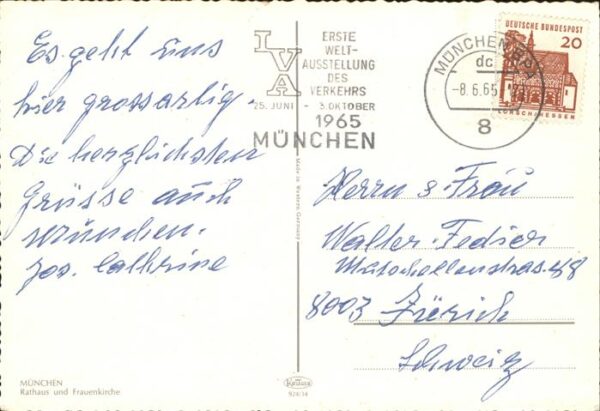 Es geht uns
hier grossartig.
Die herzlichsten
Grüsse auch
München.
Jos. Cathrine
MÜNCHEN
Rathaus und Frauenkirche
LVA
ERSTE
WELT-
AUSSTELLUNG
DES
VERKEHRS
25. JUNI - 3. OKTOBER
1965
MÜNCHEN
MÜNCHEN
dc
-8.6.65
8
DEUTSCHE BUNDESPOST
20
LORSCH/HESSEN
Made in Western Germany
KRÜGER
924/14
Herrn & Frau
Walter
8003 Zürich
Schweiz